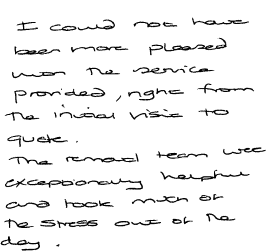 I could not have
been more pleased
with the service
provided, right from
the initial visit to
quote.
The removal team were
exceptionally helpful
and took much of
the stress out of the
day.